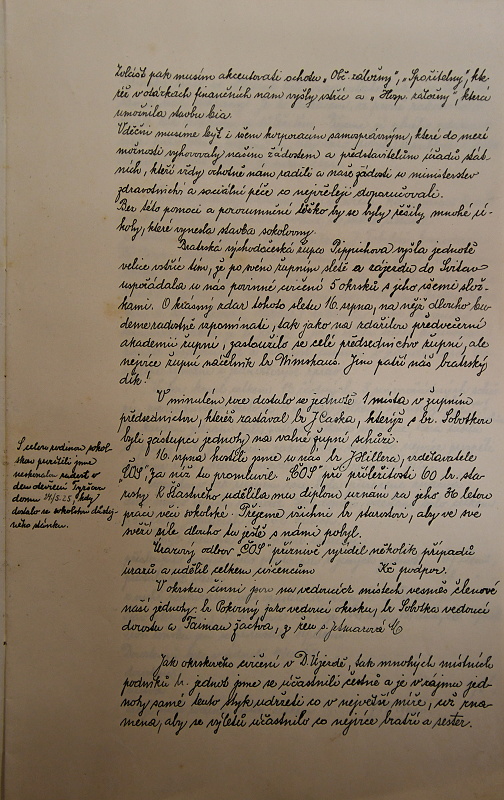 Zvlášť pak musím akcentovati ochotu „Obč. záložny", „Spořitelny", kte-
ré v otázkách finančních nám vyšly vstříc a „Hosp. záložny", která
umožnila stavbu kia.
Vděčni musíme být i všem korporacím samosprávným, které do mezí
možnosti vyhovovaly našim žádostem a představitelům úřadů stát-
ních, kteří vždy ochotně nám radili a naše žádosti u ministerstev
zdravotnictví a sociální péče co nejvřeleji doporučovali.
Bez této pomoci a porozumění těžko by se byly řešily mnohé ú-
koly, které vynesla stavba sokolovny.
Bratrská východočeská župa Pippichova vyšla jednotě
velice vstříc tím, že po svém župním sletě a zájezdu do Svitav
uspořádala u nás povinné cvičení 5 okrsků s jeho všemi slož-
kami. O krásný zdar tohoto sletu 16. srpna, na nějž dlouho bu-
deme radostně vzpomínati, tak jako na zdařilou předvečerní
akademii župní, zasloužilo se celé předsednictvo župní, ale
nejvíce župní náčelník br. Wimshaus. Jim patří náš bratrský
dík!
V minulém roce dostalo se jednotě 1 místa v župním
předsednictvu, kteréž zastával br. J. Časka, kterýž s br. Sobotkou
byli zástupci jednoty na valné župní schůzi.
16. srpna hostili jsme u nás br. J. Hillera, vzdělavatele
„ČOS", za niž tu promluvil. „ČOS" při příležitosti 60 br. sta-
rosty R. Hlastného udělila mu diplom uznání za jeho 36 letou
práci věci sokolské. Přejeme všichni br. starostovi, aby ve své
svěží síle dlouho tu ještě s námi pobyl.
Úrazový odbor „ČOS" příznivě vyřídil několik případů
úrazů a udělil celkem cvičencům Kč podpor.
V okrsku činní jsou na vedoucích místech vesměs členové
naší jednoty: br. Pokorný jako vedoucí okrsku, br. Sobotka vedoucí
dorostu a Taiman žactva, z žen s. Jetmarová
Jak okrskového cvičení v D. Újezdě, tak mnohých místních
podniků br. jednot jsme se účastnili čestně a je v zájmu jed-
noty samé tento styk udržeti co v největší míře, což zna-
mená, aby se výletů účastnilo co nejvíce bratří a sester.
S celou rodinou sokol-
skou prožili jsme
neskonalou radost v
den otevření Tyršova
domu 24/5.25, kdy
dostalo se sokolstvu důstoj-
ného stánku.